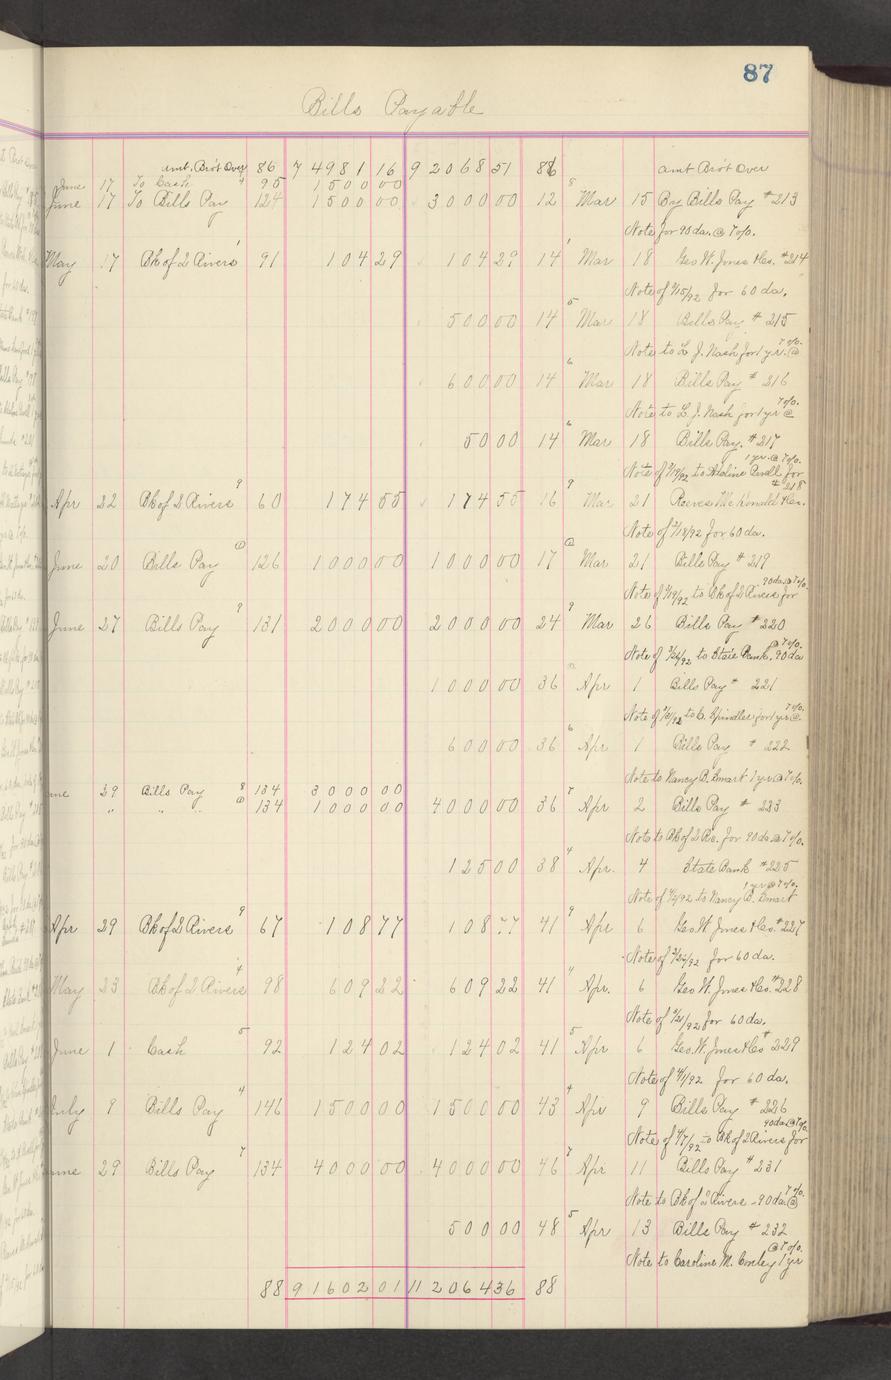 87
Bills Payable
amt. Bro't Over 86 7 4981 16 9 2068 51 86 amt Bro't Over
June 17 To Cash 95 1500 00
June 17 To Bills Pay 124 1500 00 3000 00 12 Mar 15 By Bills Pay # 213
Note for 90 da. @ 7 o/o.
May 17 Bk of 2 Rivers 91 104 29 104 29 14 Mar 18 Geo W. Jones & Co. #214
Note of 3/15/92 for 60 da.
500 00 14 Mar 18 Bills Pay # 215
Note to L. J. Nash for 1 yr. @ 7 o/o.
600 00 14 Mar 18 Bills Pay # 216
Note to L. J. Nash for 1 yr @ 7 o/o.
50 00 14 Mar 18 Bills Pay. # 217
1 yr. @ 7 o/o.
Note of 3/19/92 to for
Apr 22 Bk of 2 Rivers 60 174 55 174 55 16 Mar 21 & Co. #218
Note of 2/18/92 for 60 da.
June 20 Bills Pay 126 1000 00 1000 00 17 Mar 21 Bills Pay # 219
90 da @ 7 o/o.
Note of 3/19/92 to Bk of 2 Rivers for
June 27 Bills Pay 131 2000 00 2000 00 24 Mar 26 Bills Pay # 220
Note of 3/26/92 to State Bank. 90 da @ 7 o/o.
1000 00 36 Apr 1 Bills Pay # 221
Note of to C. Spindler for 1 yr @ 7 o/o.
600 00 36 Apr 1 Bills Pay # 222
Note to Nancy B. Smart 1 yr @ 7 o/o.
June 29 Bills Pay 134 3000 00
" " " 134 1000 00 4000 00 36 Apr 2 Bills Pay # 223
Note to Bk of 2 Rs. for 90 da @ 7 o/o.
125 00 38 Apr. 4 State Bank # 225
1 yr @ 7 o/o.
Note of 4/2/92 to Nancy B. Smart
Apr 29 Bk of 2 Rivers 67 108 77 108 77 41 Apr 6 Geo W Jones & Co. # 227
Note of 2/26/92 for 60 da.
May 23 Bk of 2 Rivers 98 609 22 609 22 41 Apr. 6 Geo W. Jones & Co. # 228
Note of 3/21/92 for 60 da.
June 1 Cash 92 124 02 124 02 41 Apr 6 Geo. W. Jones & Co # 229
Note of 4/1/92 for 60 da.
July 9 Bills Pay 146 1500 00 1500 00 43 Apr 9 Bills Pay # 226
90 da @ 7 o/o.
Note of 4/7/92 to Bk of 2 Rivers for
June 29 Bills Pay 134 4000 00 4000 00 46 Apr 11 Bills Pay # 231
Note to Bk of 2 Rivers - 90 da @ 7 o/o.
500 00 48 Apr 13 Bills Pay # 232
Note to Caroline M. Conley 1 yr @ 7 o/o.
88 9 1602 01 11 2064 36 88